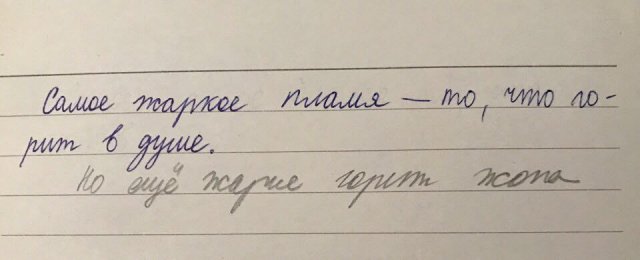 Самое жаркое пламя — то, что го-
рит в душе.
Но ещё жарче горит жопа